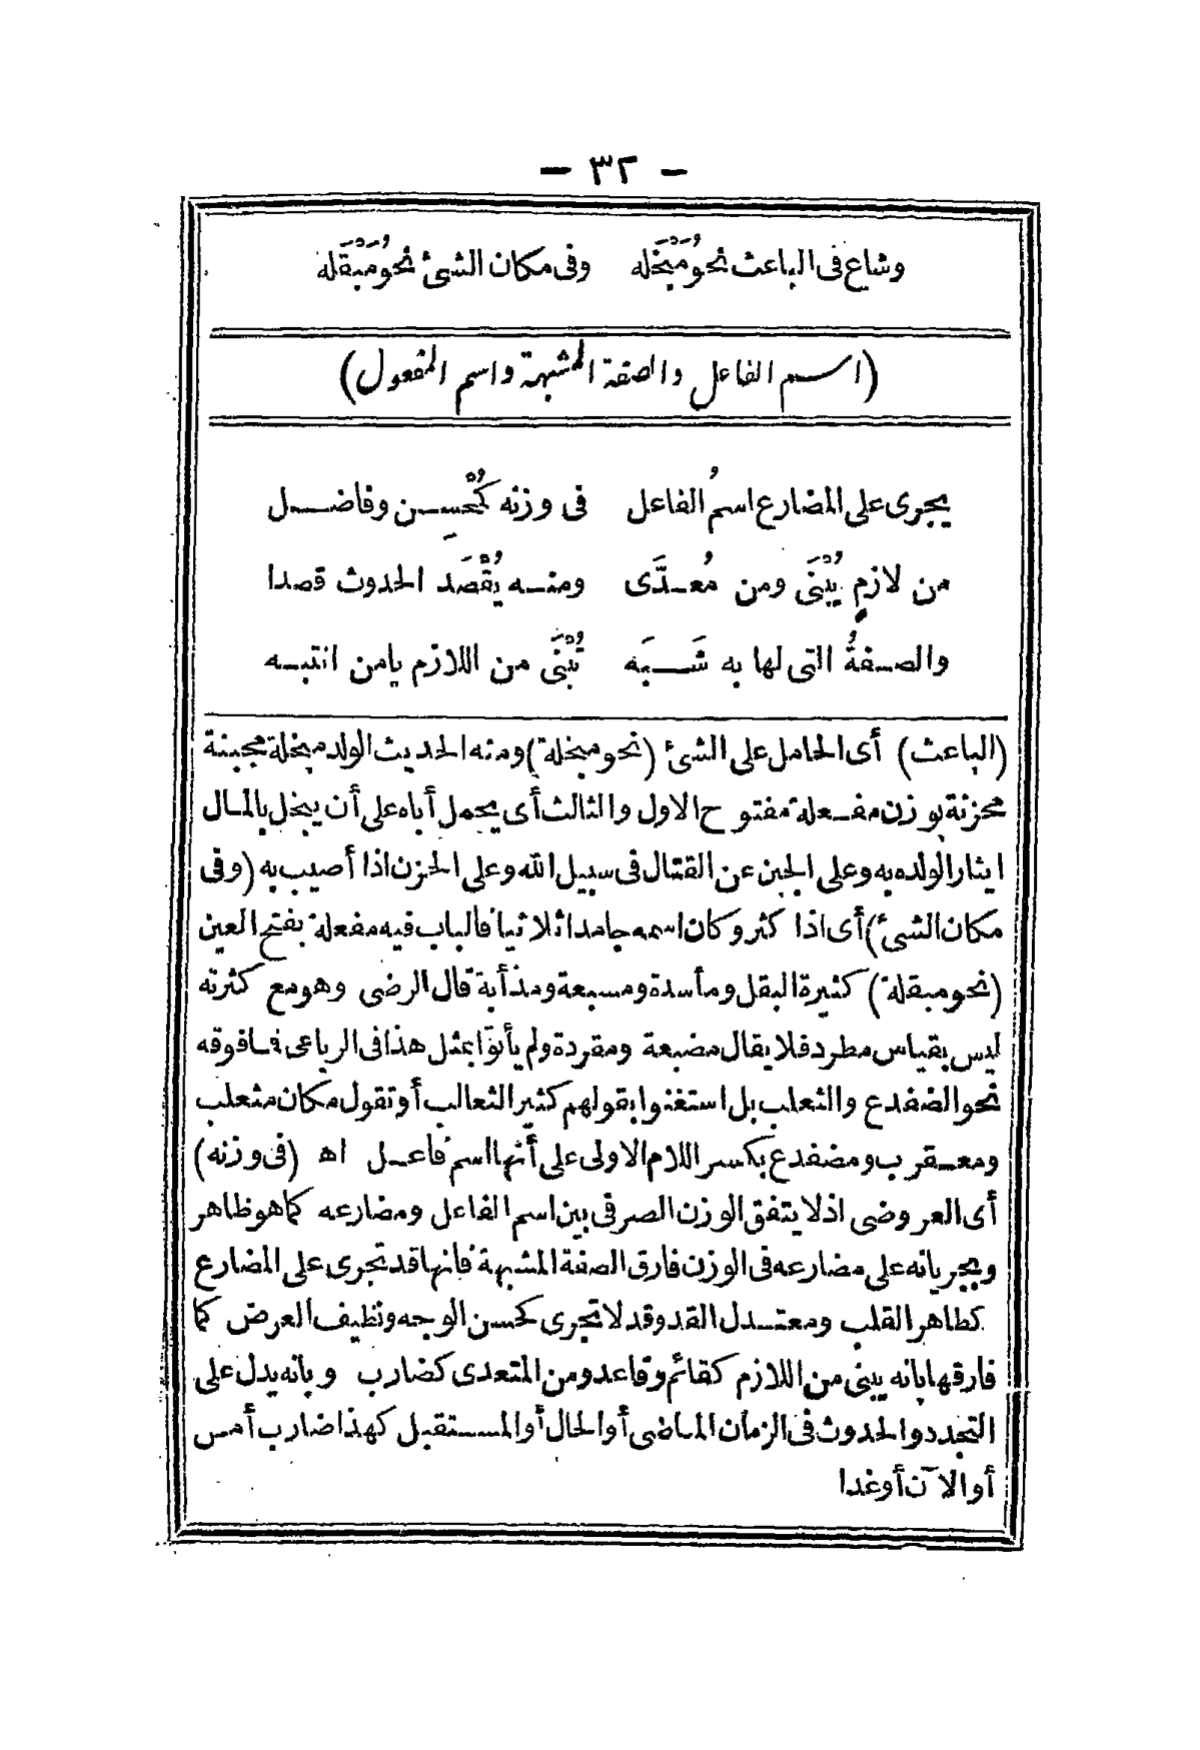 - ٣٢ -
وشاع فى الباعث نحوُ مَبْخَلَه وفى مكان الشئ نحوُ مَبْقَلَه
(اسم الفاعل والصفة المشبهة واسم المفعول)
يجرى على المضارع اسمُ الفاعل فى وزنه كمُحْسِن وفاضل
من لازمٍ يُبْنَى ومن مُعدَّى ومنه يُقْصَد الحدوث قصدا
والصفةُ التى لها به شَبَه تُبْنَى من اللازم يامن انتبه
(الباعث) أى الحامل على الشئ (نحو مبخلة) ومنه الحديث الولد مبخلة مجبنة
محزنة بوزن مفعلة مفتوح الاول والثالث أى يحمل أباه على أن يبخل بالمال
ايثارا لولده به وعلى الجبن عن القتال فى سبيل الله وعلى الحزن اذا أصيب به (وفى
مكان الشئ) أى اذا كثر وكان اسمه جامدا ثلاثيا فالباب فيه مفعلة بفتح العين
(نحو مبقلة) كثيرة البقل ومأسدة ومسبعة ومذأبة قال الرضى وهو مع كثرته
ليس بقياس مطرد فلا يقال مضبعة ومقردة ولم يأتوا بمثل هذا فى الرباعى فما فوقه
نحو الضفدع والثعلب بل استغنوا بقولهم كثير الثعالب أو تقول مكان مثعلب
ومعقرب ومضفدع بكسر اللام الاولى على أنها اسم فاعل اه (فى وزنه)
أى العروضى اذ لا يتفق الوزن الصرفى بين اسم الفاعل ومضارعه كما هو ظاهر
وبجريانه على مضارعه فى الوزن فارق الصفة المشبهة فانها قد تجرى على المضارع
كطاهر القلب ومعتدل القد وقد لا تجرى كحسن الوجه ونظيف العرض كما
فارقها بانه يبنى من اللازم كقائم وقاعد ومن المتعدى كضارب وبانه يدل على
التجدد والحدوث فى الزمان الماضى أو الحال أو المستقبل كهذا ضارب أمس
أو الآن أو غدا